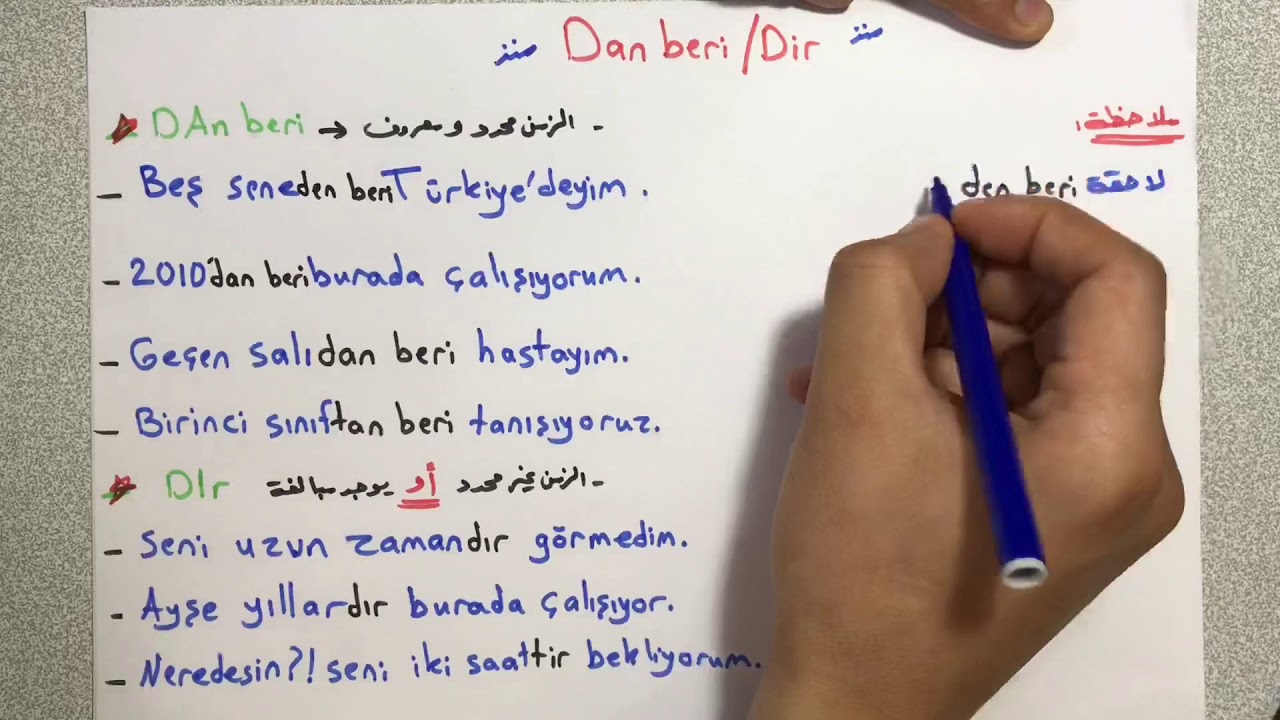 منذ Dan beri / Dir منذ
DAn beri → الزمن محدد و معروف -
ملاحظة:
- Beş seneden beri Türkiye'deyim.
لاحقة den beri
- 2010'dan beri burada çalışıyorum.
- Geçen salıdan beri hastayım.
- Birinci sınıftan beri tanışıyoruz.
DIr الزمن غير محدد أو يوجد مبالغة -
- Seni uzun zamandır görmedim.
- Ayşe yıllardır burada çalışıyor.
- Neredesin?! seni iki saattir bekliyorum.